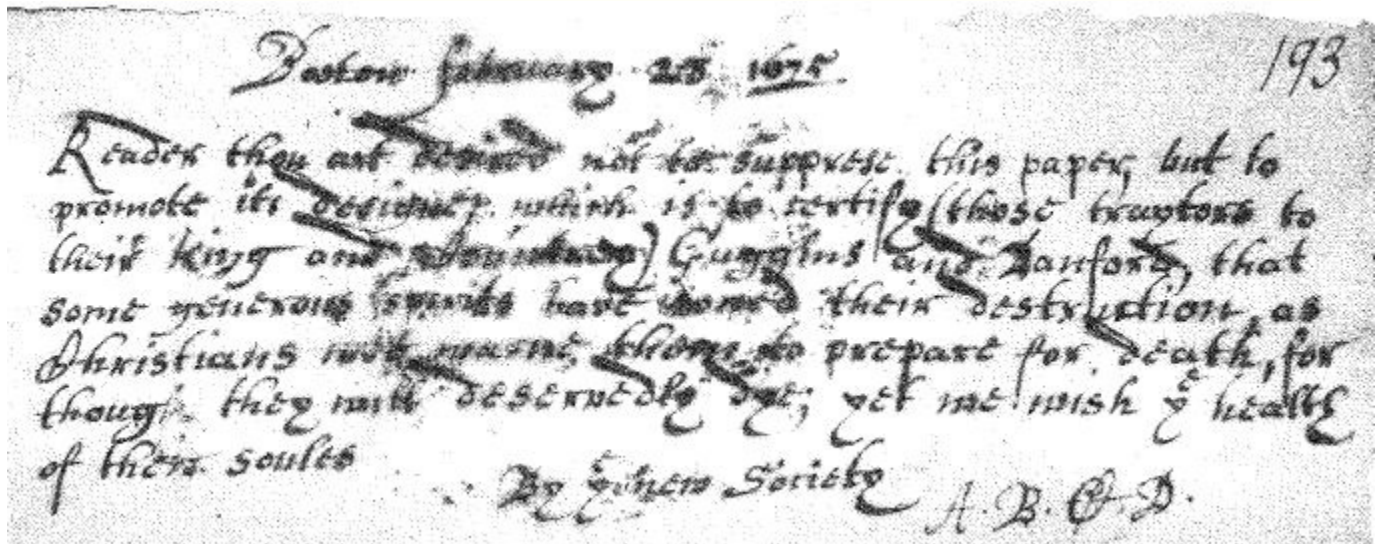 Boston february 28 1675
193
Reader thou art desired not to suppresse this paper, but to
promote its designe, which is to certify (those traytors to
their king and countrey) Guggins and Danford, that
some generous spirits have vowed their destruction, as
Christians wee warne them to prepare for death, for
though they will deservedly dye, yet we wish ye health
of their soules
By ye new Society
A. B. C. D.